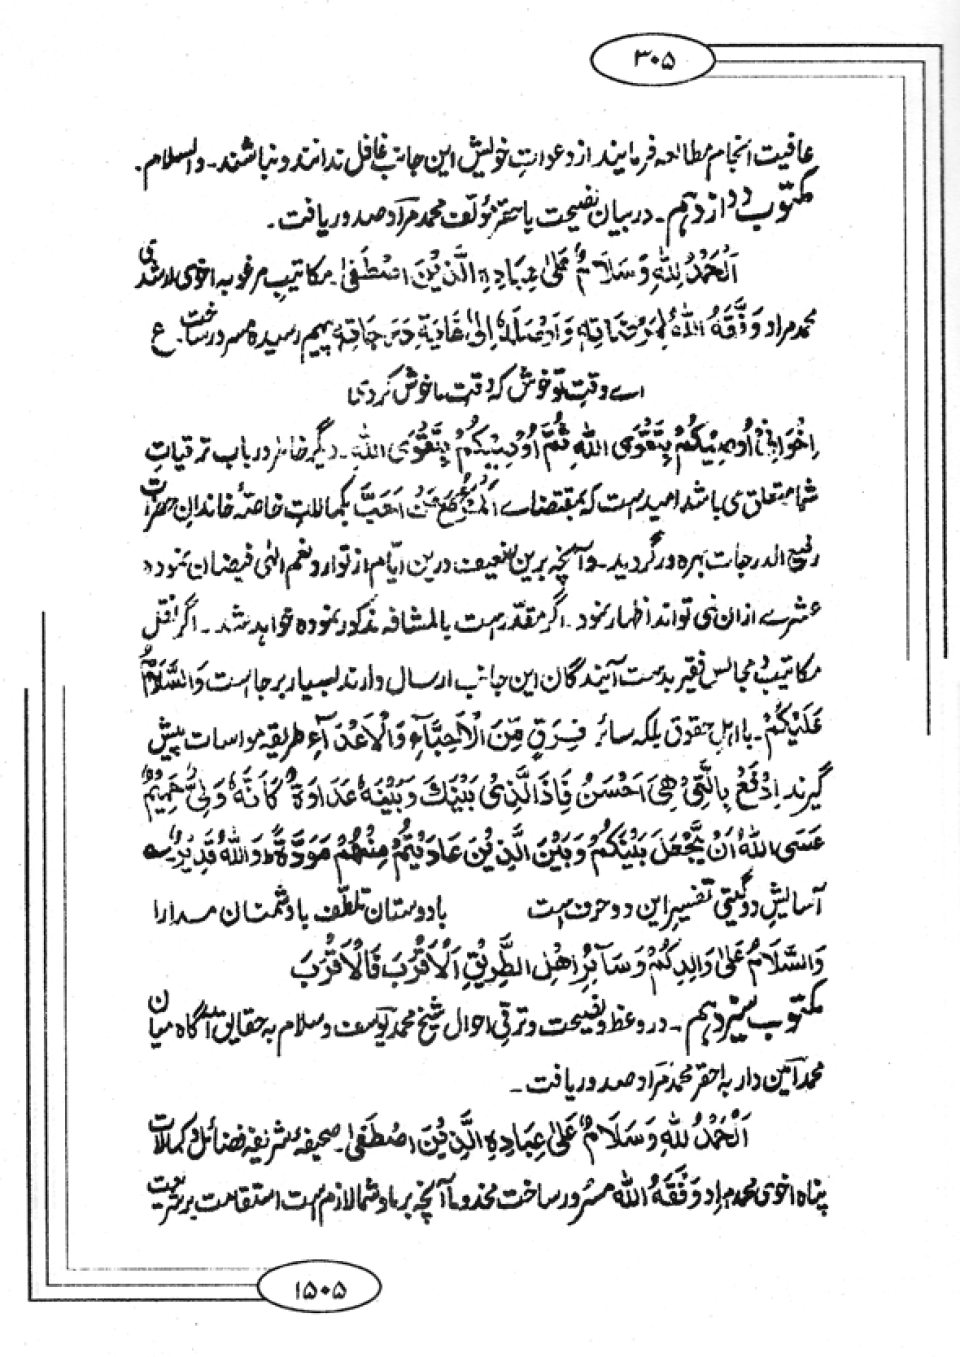 ۳۰۵
عافیت انجام مطالعه فرمایند از دعوات خویش این جانب غافل ندانند و نباشند ۔ والسلام ۔
مکتوب دوازدہم ۔ در بیان نصیحت باحقر مؤلف محمد مراد صدور یافت ۔
اَلْحَمْدُ لِلّٰهِ وَسَلَامٌ عَلٰی عِبَادِهِ الَّذِیْنَ اصْطَفٰی ۔ مکاتیبِ مرغوبہ اخوی ارشدی
محمد مراد وَفَّقَهُ اللّٰهُ لِمَرْضَاتِهٖ وَاَوْصَلَهٗ اِلٰی غَایَةِ دَرَجَاتِهٖ پیہم رسیدہ مسرور ساخت ۔ ع
اے وقتِ تو خوش کہ وقتِ ما خوش کردی
اِخْوَانِیْ اُوْصِیْکُمْ بِتَقْوَی اللّٰهِ ثُمَّ اُوْصِیْکُمْ بِتَقْوَی اللّٰهِ ۔ دیگر خاطر در باب ترقیاتِ
شما متعلق می باشد امیدست کہ بمقتضاے اَلْمَرْءُ مَعَ مَنْ اَحَبَّ بکمالاتِ خاصّۂ خاندانِ حضرات
رفیع الدرجات بہرہ ور گردید ۔ وآنچہ برین ضعیف درین ایّام از توارد نعم الٰہی فیضان نمودہ
عشرے ازان نمی تواند اظہار نمود ۔ اگر مقدّرست بالمشافہ مذکور نمودہ خواہد شد ۔ اگر نقل
مکاتیب و مجالس فقیر بدست آیندگان این جانب ارسال دارند بسیار برجاست وَالسَّلَامُ
عَلَیْکُمْ ۔ با اہلِ حقوق بلکہ سائر فِرَقٍ مِّنَ الْاَحِبَّآءِ وَالْاَعْدَآءِ طریقہ مواسات پیش
گیرند اِدْفَعْ بِالَّتِیْ هِیَ اَحْسَنُ فَاِذَا الَّذِیْ بَیْنَكَ وَبَیْنَهٗ عَدَاوَةٌ کَاَنَّهٗ وَلِیٌّ حَمِیْمٌ
عَسَی اللّٰهُ اَنْ یَّجْعَلَ بَیْنَکُمْ وَبَیْنَ الَّذِیْنَ عَادَیْتُمْ مِنْهُمْ مَوَدَّةً وَاللّٰهُ قَدِیْرٌ
آسایشِ دو گیتی تفسیرِ این دو حرف ست با دوستان تلطّف با دشمنان مدارا
وَالسَّلَامُ عَلٰی وَالِدِکُمْ وَسَآئِرِ اَهْلِ الطَّرِیْقِ اَلْاَقْرَبَ فَالْاَقْرَبَ
مکتوب سیزدہم ۔ در وعظ و نصیحت و ترقی احوال شیخ محمد یوسف و سلام بہ حقایق آگاہ میان
محمد امین دار بہ احقر محمد مراد صدور یافت ۔
اَلْحَمْدُ لِلّٰهِ وَسَلَامٌ عَلٰی عِبَادِهِ الَّذِیْنَ اصْطَفٰی ۔ صحیفۂ شریفہ فضائل و کمالات
پناہ اخوی محمد مراد وَفَّقَهُ اللّٰهُ مسرور ساخت مخدوما آنچہ بر ما و شما لازم ست استقامت بر شریعت
۱۵۰۵